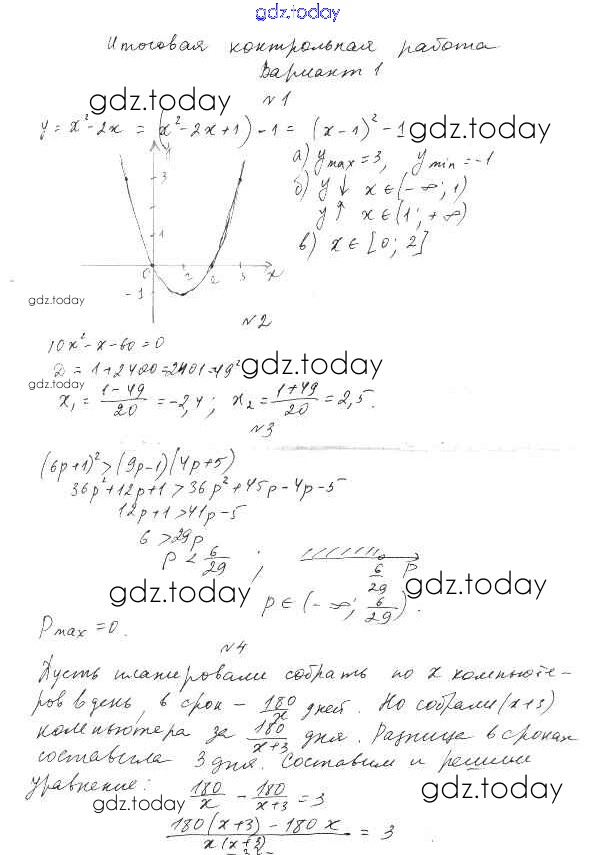 gdz.today
Итоговая контрольная работа
Вариант 1
gdz.today
№1
y = x² - 2x = (x² - 2x + 1) - 1 = (x - 1)² - 1
gdz.today
а) y max = 3, y min = -1
б) y ↓ x ∈ (-∞; 1)
y ↑ x ∈ (1; +∞)
в) x ∈ [0; 2]
y
3
1
0 1 2 3 x
-1
gdz.today
№2
10x² - x - 60 = 0
D = 1 + 2400 = 2401 = 49²
gdz.today
gdz.today
x₁ = (1 - 49)/20 = -2,4; x₂ = (1 + 49)/20 = 2,5.
№3
(6p+1)² > (9p-1)(4p+5)
36p² + 12p + 1 > 36p² + 45p - 4p - 5
12p + 1 > 41p - 5
6 > 29p
p < 6/29 ; 6/29 p
gdz.today
gdz.today
p ∈ (-∞; 6/29).
P max = 0.
№4
Пусть планировали собрать по x компьюте-
ров в день, в срок - 180/x дней. Но собрали (x+3)
компьютера за 180/(x+3) дня. Разница в сроках
составила 3 дня. Составим и решим
уравнение: 180/x - 180/(x+3) = 3
gdz.today
gdz.today
(180(x+3) - 180x)/(x(x+3)) = 3